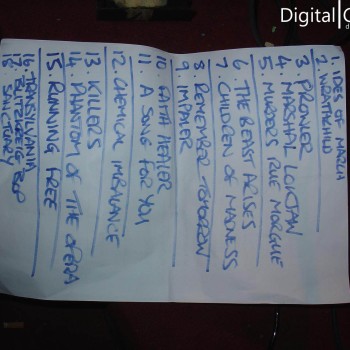 Digital
1. IDES OF MARCH
2. WRATHCHILD
3. PROWLER
4. MARSHAL LOKJAN
5. MURDERS RUE MORGUE
6. THE BEAST ARISES
7. CHILDREN OF MADNESS
8. REMEMBER TOMORROW
9. IMPALER
10. FAITH HEALER
11. A SONG FOR YOU
12. CHEMICAL IMBALANCE
13. KILLERS
14. PHANTOM OF THE OPERA
15. RUNNING FREE
16. TRANSYLVANIA
17. BLITZKRIEG BOP
18. SANCTUARY